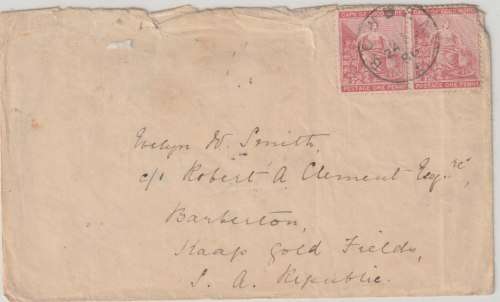 CAPE OF GOOD HOPE CAPE OF GOOD HOPE
POSTAGE ONE PENNY POSTAGE ONE PENNY
Evelyn W. Smith,
c/o Robert A Clement Esqre
Barberton,
Kaap Gold Fields,
S. A. Republic.